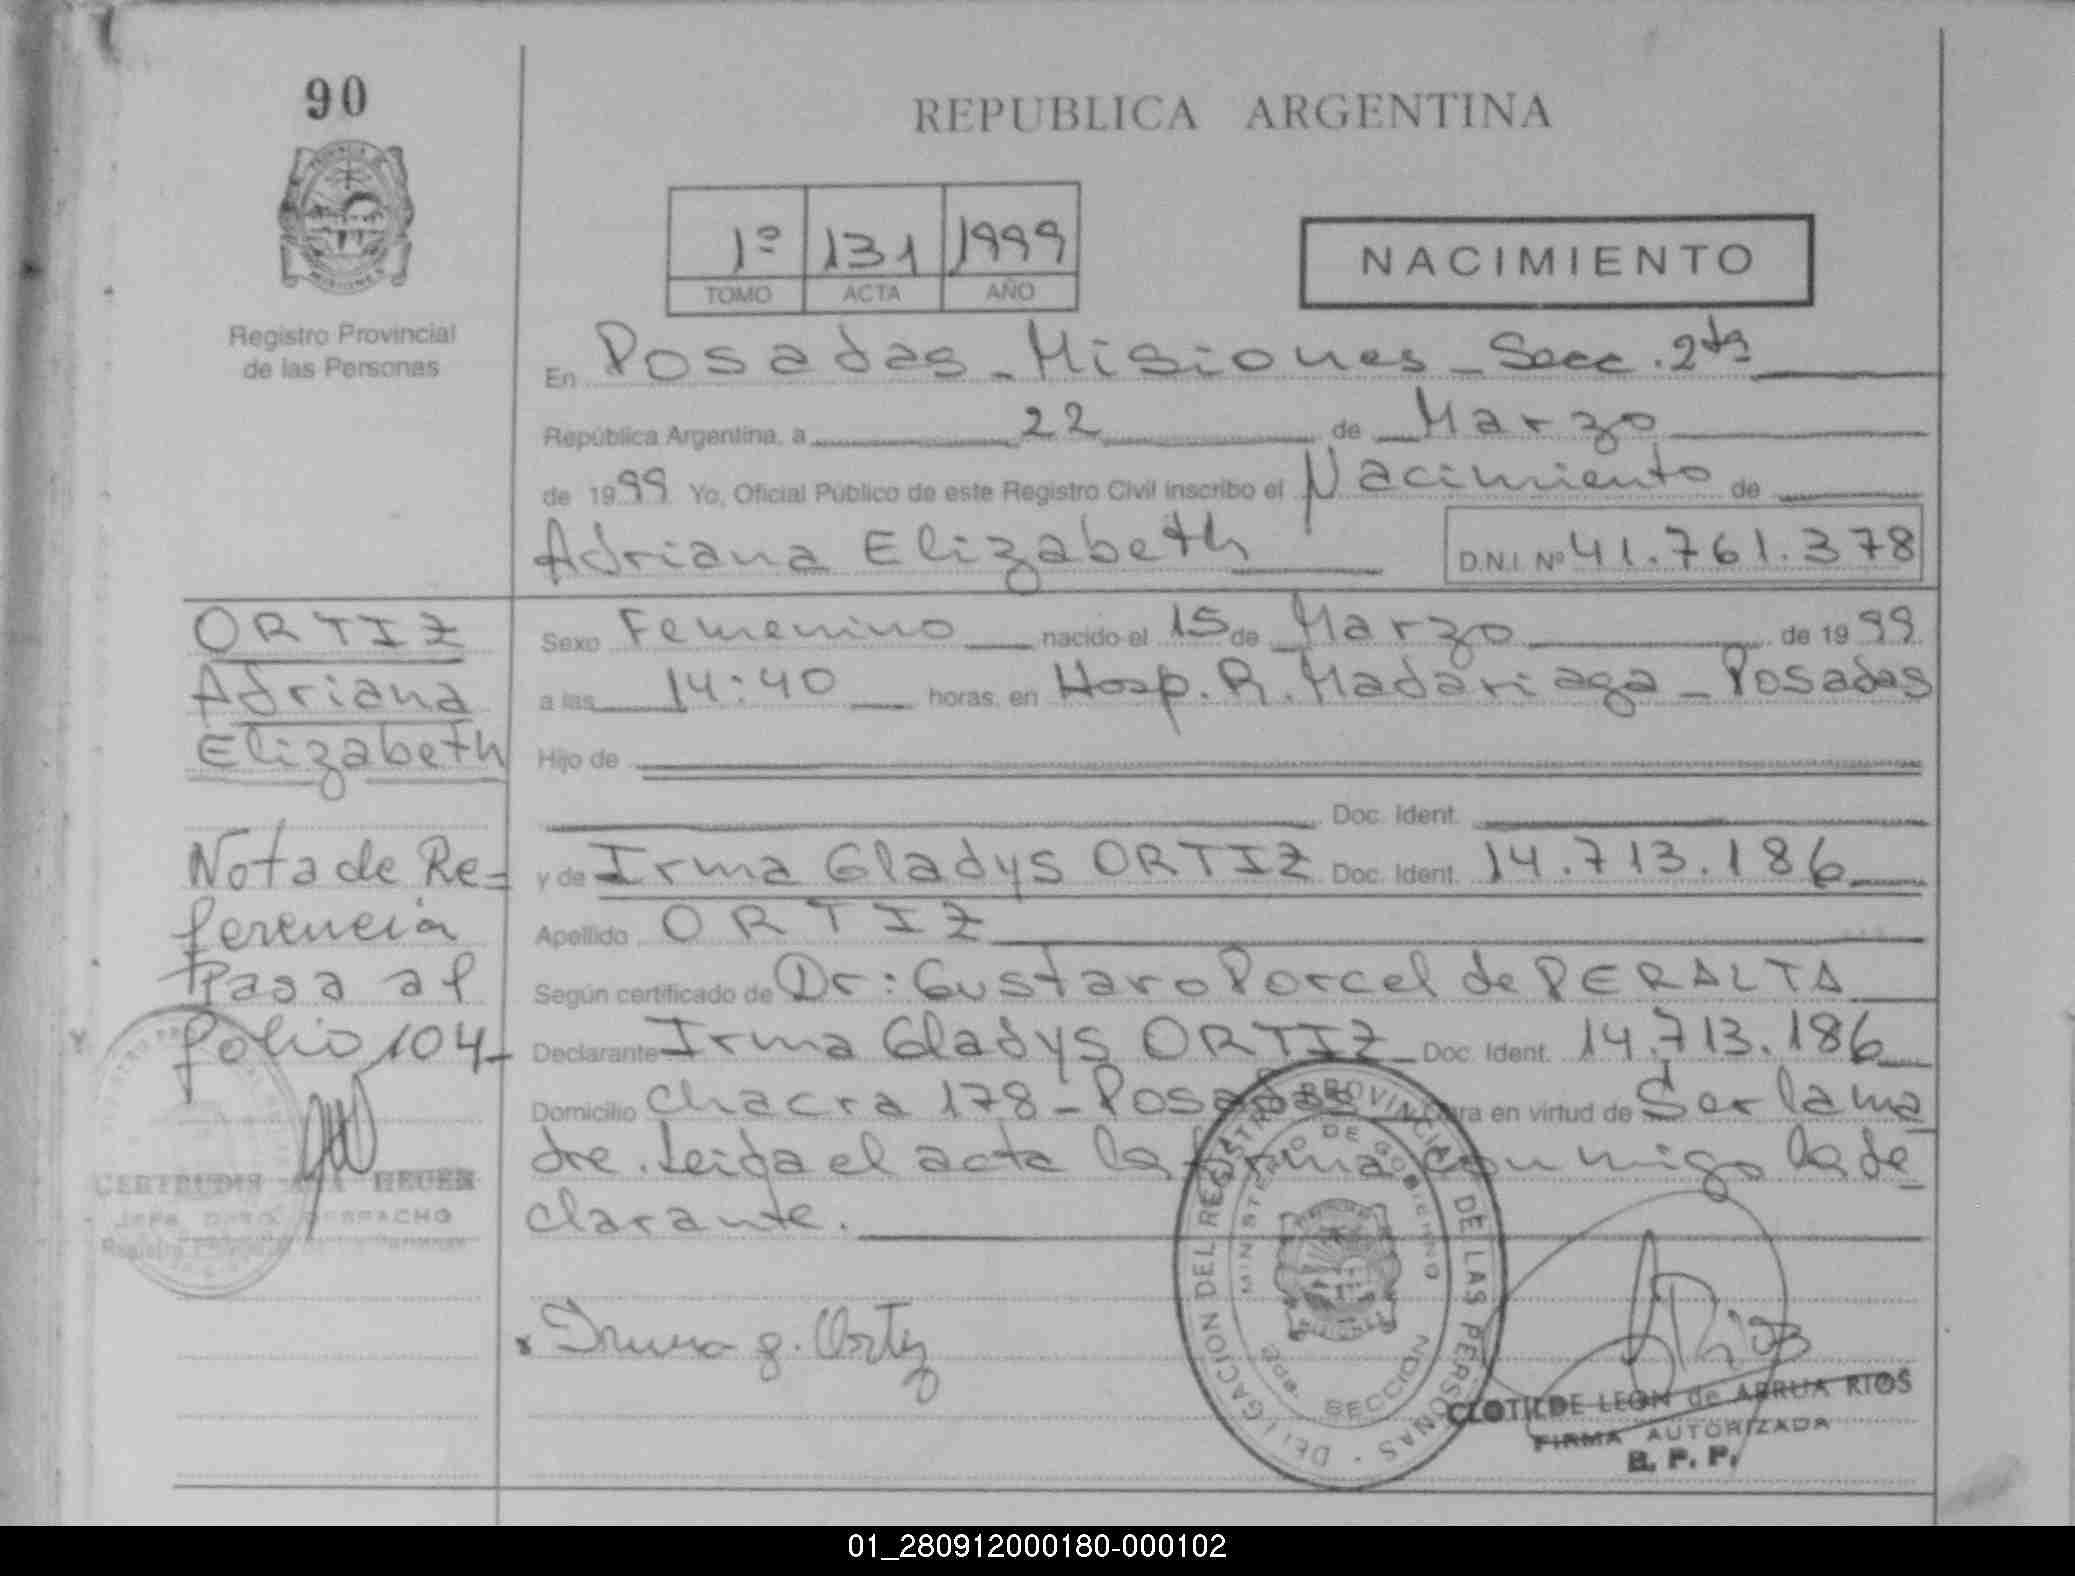 90
REPUBLICA ARGENTINA
1º 131 1999
TOMO ACTA AÑO
NACIMIENTO
Registro Provincial
de las Personas
En Posadas - Misiones - Secc. 2da
República Argentina, a 22 de Marzo
de 1999 Yo, Oficial Público de este Registro Civil inscribo el Nacimiento de
Adriana Elizabeth D.N.I. Nº 41.761.378
ORTIZ
Adriana
Elizabeth
Sexo Femenino nacido el 15 de Marzo de 1999
a las 14:40 horas, en Hosp. R. Madariaga - Posadas
Hijo de
Doc. Ident.
y de Irma Gladys ORTIZ Doc. Ident. 14.713.186
Apellido ORTIZ
Según certificado de Dr: Gustavo Porcel de PERALTA
Declarante Irma Gladys ORTIZ - Doc. Ident. 14.713.186
Domicilio Chacra 178 - Posadas Declara en virtud de Ser la ma
dre. Leida el acta la firma conmigo la de
clarante.
Nota de Re=
ferencia
Pasa al
folio 104-
GERTRUDIS HEUER
JEFA DPTO. DESPACHO
Irma g. Ortiz
DELEGACION DEL REGISTRO PROVINCIAL DE LAS PERSONAS
MINISTERIO DE GOBIERNO
SECCION
Rios
CLOTILDE LEON de ABRUA RIOS
FIRMA AUTORIZADA
R. P. P.
01_280912000180-000102